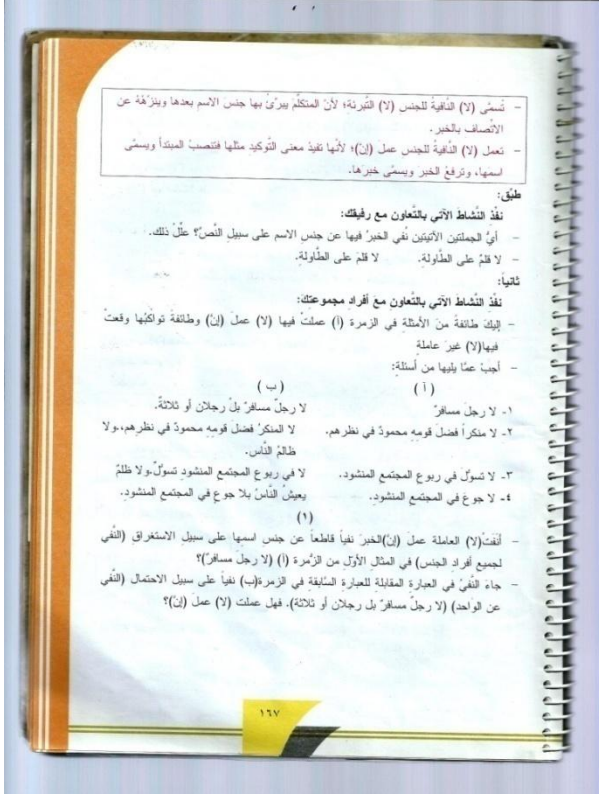 - تُسمّى (لا) النّافيةُ للجنس (لا) التّبرئة؛ لأنّ المتكلّم يبرّئ بها جنسَ الاسم بعدها وينزّههُ عن
الاتّصاف بالخبر.
- تعمل (لا) النّافيةُ للجنس عملَ (إنّ)؛ لأنّها تفيدُ معنى التّوكيد مثلها فتنصبُ المبتدأ ويسمّى
اسمها، وترفعُ الخبر ويسمّى خبرَها.
طبّق:
نفّذِ النّشاطَ الآتي بالتّعاونِ مع رفيقك:
- أيُّ الجملتين الآتيتين نُفي الخبرُ فيها عن جنسِ الاسم على سبيلِ النّصّ؟ علّلْ ذلك.
- لا قلمَ على الطّاولةِ. لا قلمٌ على الطّاولةِ.
ثانياً:
نفّذِ النّشاطَ الآتي بالتّعاونِ معَ أفرادِ مجموعتكَ:
- إليكَ طائفةً منَ الأمثلةِ في الزمرة (أ) عملتْ فيها (لا) عملَ (إنّ) وطائفةً تواكبُها وقعتْ
فيها(لا) غيرَ عاملةٍ
- أجبْ عمّا يليها من أسئلةٍ:
( أ ) ( ب )
١- لا رجلَ مسافرٌ لا رجلٌ مسافرٌ بلْ رجلان أو ثلاثةٌ.
٢- لا منكراً فضلَ قومِهِ محمودٌ في نظرِهم. لا المنكرُ فضلَ قومِهِ محمودٌ في نظرِهم،.ولا
ظالمُ النّاس.
٣- لا تسوّلَ في ربوعِ المجتمعِ المنشودِ. لا في ربوعِ المجتمعِ المنشودِ تسوّلٌ.ولا ظلمٌ
٤- لا جوعَ في المجتمعِ المنشودِ. يعيشُ النّاسُ بلا جوعٍ في المجتمعِ المنشودِ.
(١)
- أنَفتْ(لا) العاملة عملَ (إنّ)الخبرَ نفياً قاطعاً عن جنسِ اسمها على سبيلِ الاستغراقِ (النّفي
لجميعِ أفرادِ الجنس) في المثالِ الأوّلِ من الزّمرة (أ) (لا رجلَ مسافرٌ)؟
- جاءَ النّفيُ في العبارة المقابلةِ للعبارة السّابقةِ في الزمرة(ب) نفياً على سبيلِ الاحتمال (النّفي
عن الواحد) (لا رجلٌ مسافرٌ بل رجلان أو ثلاثة). فهل عملت (لا) عملَ (إنّ)؟
١٦٧